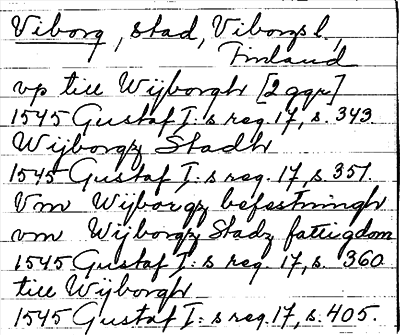 Viborg, stad, Viborgs l.,
Finland
vp till Wijborgh [2 ggr]
1545 Gustaf I:s reg. 17, s. 343.
Wijborgz Stadh
1545 Gustaf I:s reg. 17, s. 351.
Vm Wijborgz befesstningh
vm Wijborgz Stadz fattigdom
1545 Gustaf I:s reg. 17, s. 360
till Wijborgh
1545 Gustaf I:s reg. 17, s. 405.